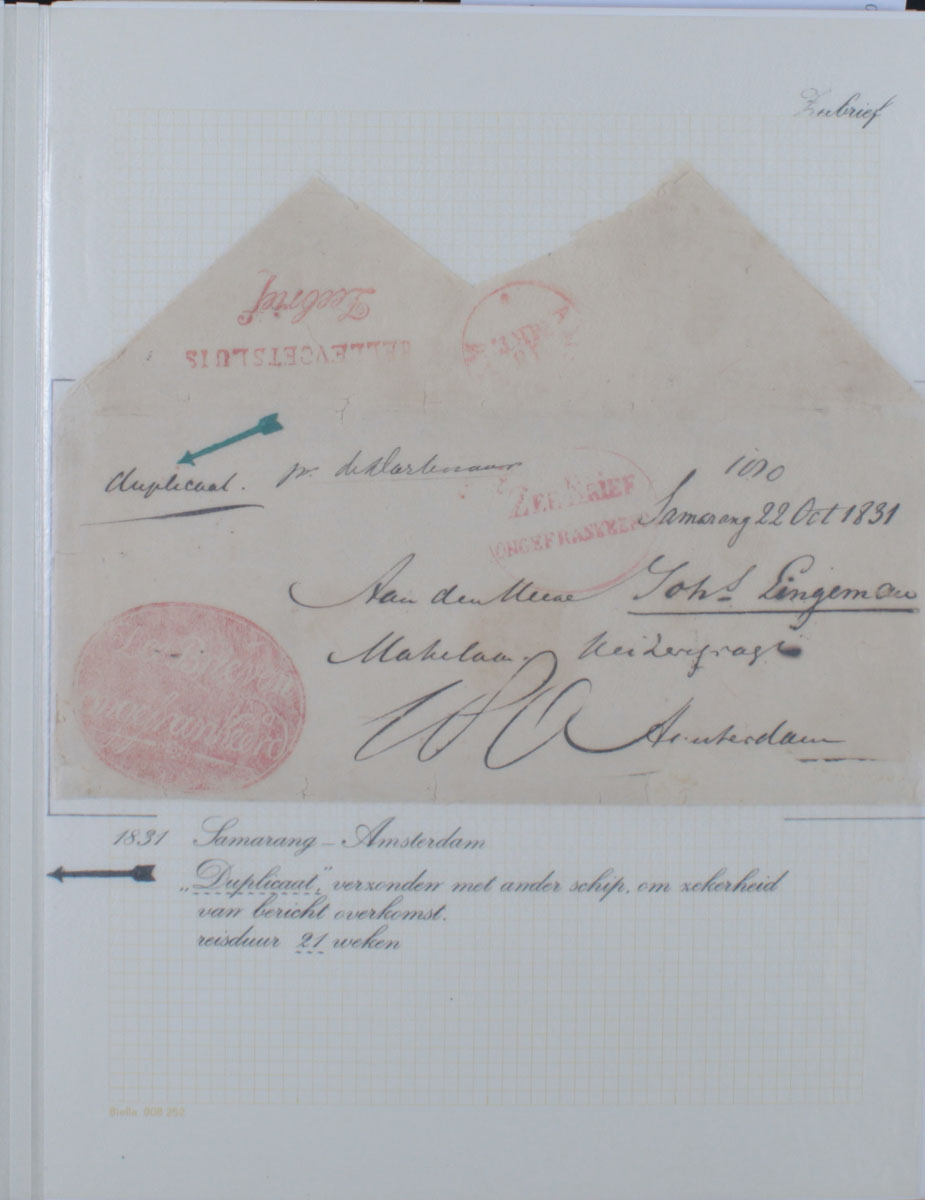 Zeebrief
Zeebrief
HELLEVOETSLUIS
duplicaat. pr.
Samarang 22 Oct 1831
ZEE BRIEF
ONGEFRANKEERD
Aan den Heere Johs Lingeman
Makelaar.
Amsterdam
1831 Samarang – Amsterdam
„Duplicaat", verzonden met ander schip, om zekerheid
van bericht overkomst.
reisduur 21 weken
Biella 008 252